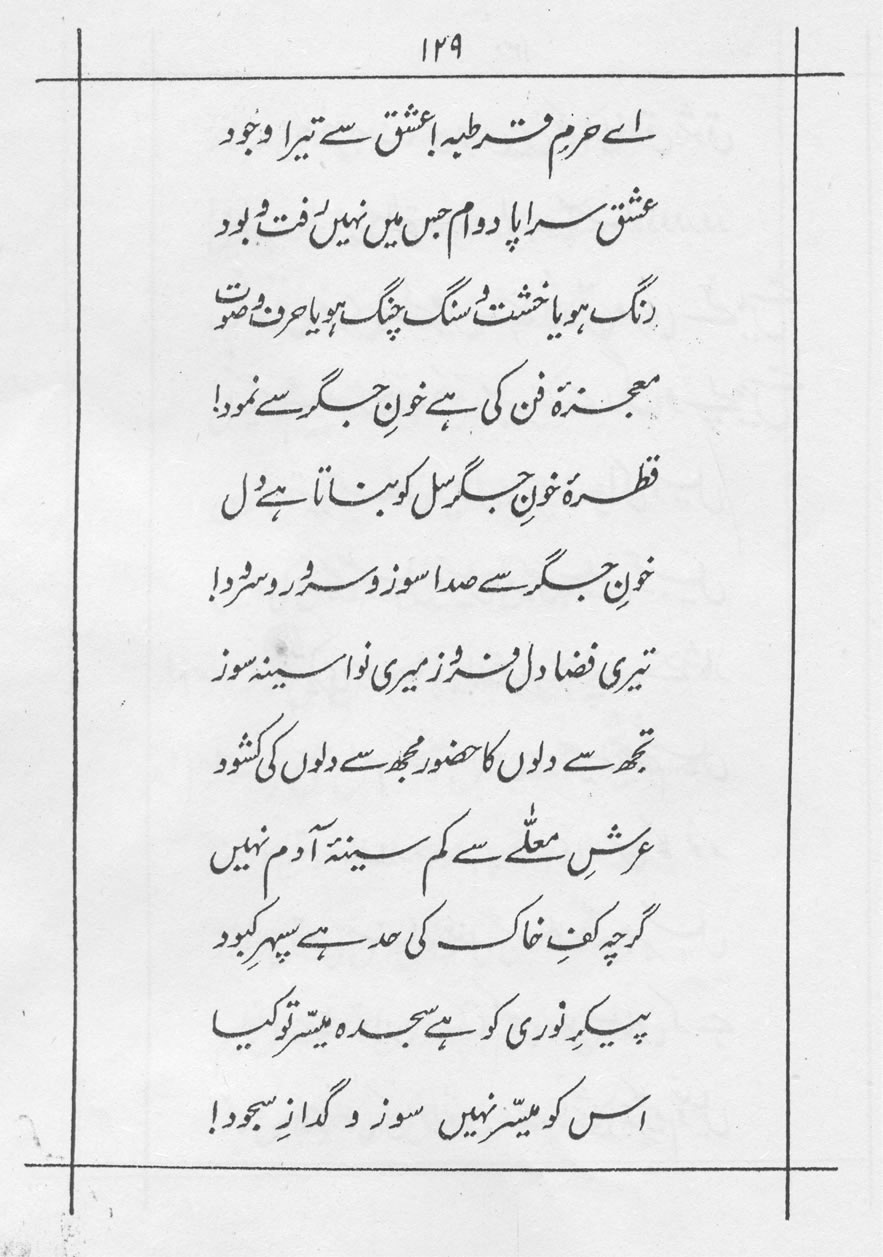 ۱۲۹
اے حرمِ قرطبہ! عشق سے تیرا وجود
عشق سراپا دوام جس میں نہیں رفت و بود
رنگ ہو یا خشت و سنگ چنگ ہو یا حرف و صوت
معجزۂ فن کی ہے خونِ جگر سے نمود!
قطرۂ خونِ جگر سل کو بناتا ہے دل
خونِ جگر سے صدا سوز و سرور و سرود!
تیری فضا دل فروز میری نوا سینہ سوز
تجھ سے دلوں کا حضور مجھ سے دلوں کی کشود
عرشِ معلّٰے سے کم سینۂ آدم نہیں
گرچہ کفِ خاک کی حد ہے سپہرِ کبود
پیکرِ نوری کو ہے سجدہ میسّر تو کیا
اس کو میسّر نہیں سوز و گدازِ سجود!